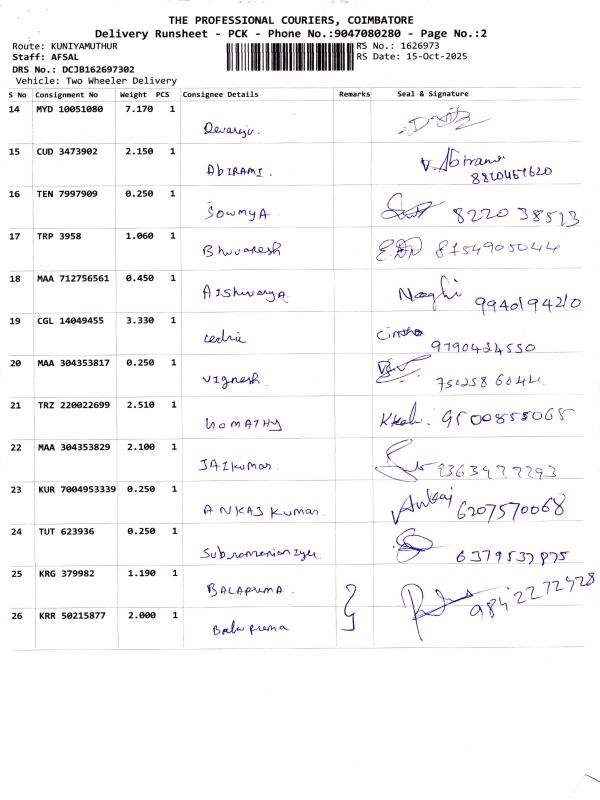 THE PROFESSIONAL COURIERS, COIMBATORE
Delivery Runsheet - PCK - Phone No.:9047080280 - Page No.:2
Route: KUNIYAMUTHUR RS No.: 1626973
Staff: AFSAL RS Date: 15-Oct-2025
DRS No.: DCJB162697302
Vehicle: Two Wheeler Delivery
S No Consignment No Weight PCS Consignee Details Remarks Seal & Signature
14 MYD 10051080 7.170 1 Devaraju.
15 CUD 3473902 2.150 1 AbIRAMI. V. Abirami
16 TEN 7997909 0.250 1 SowmyA
17 TRP 3958 1.060 1 Bhuvanesh 8754905044
18 MAA 712756561 0.450 1 AIShwarya.
19 CGL 14049455 3.330 1 cedric 9790424530
20 MAA 304353817 0.250 1 vignesh. 7502586044
21 TRZ 220022699 2.510 1 GOMATHY 9500855065
22 MAA 304353829 2.100 1 JAIKumar. 9363977293
23 KUR 7004953339 0.250 1 ANKAJ Kumar. Ankaj 6207570068
24 TUT 623936 0.250 1 Subramanian Iyer 6379537875
25 KRG 379982 1.190 1 BALAPREMA. 9842272428
26 KRR 50215877 2.000 1 Bala Prema